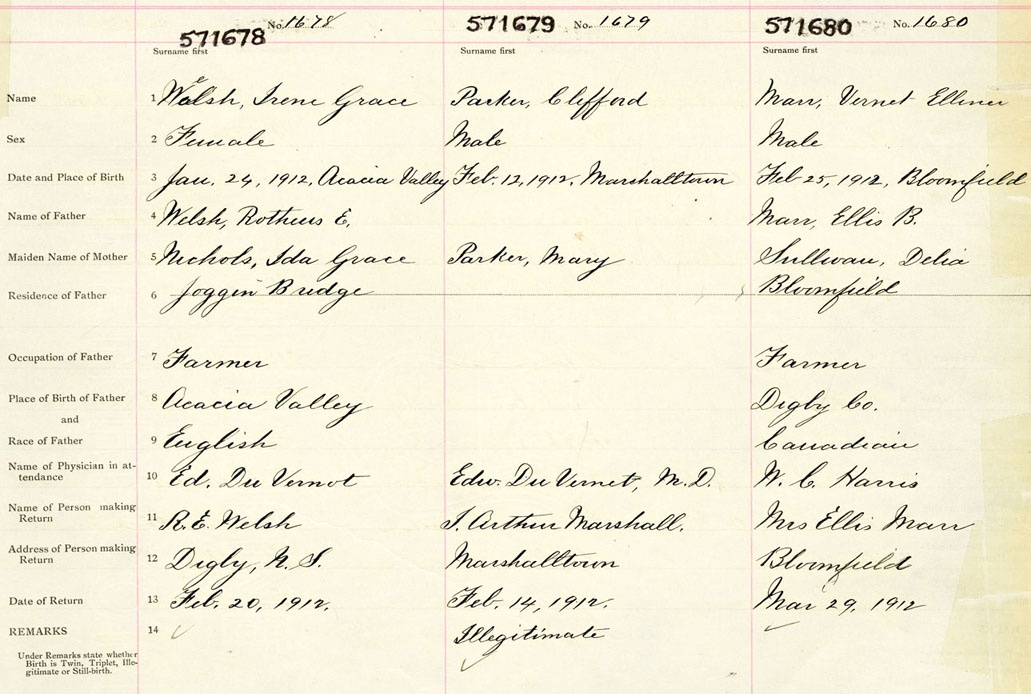 571678 No. 1678 571679 No. 1679 571680 No. 1680
Surname first Surname first Surname first
Name 1 Welsh, Irene Grace Parker, Clifford Marr, Vernet Ellmer
Sex 2 Female Male Male
Date and Place of Birth 3 Jan. 24, 1912, Acacia Valley Feb. 12, 1912, Marshalltown Feb 25, 1912, Bloomfield
Name of Father 4 Welsh, Rotheus E. Marr, Ellis B.
Maiden Name of Mother 5 Nichols, Ida Grace Parker, Mary Sullivan, Delia
Residence of Father 6 Joggin Bridge Bloomfield
Occupation of Father 7 Farmer Farmer
Place of Birth of Father 8 Acacia Valley Digby Co.
and
Race of Father 9 English Canadian
Name of Physician in at-
tendance 10 Ed. Du Vernot Edw. Du Vernet, M.D. W. C. Harris
Name of Person making
Return 11 R. E. Welsh J. Arthur Marshall. Mrs Ellis Marr
Address of Person making
Return 12 Digby, N. S. Marshalltown Bloomfield
Date of Return 13 Feb. 20, 1912. Feb. 14, 1912. Mar 29, 1912
REMARKS 14 Illegitimate
Under Remarks state whether
Birth is Twin, Triplet, Ille-
gitimate or Still-birth.